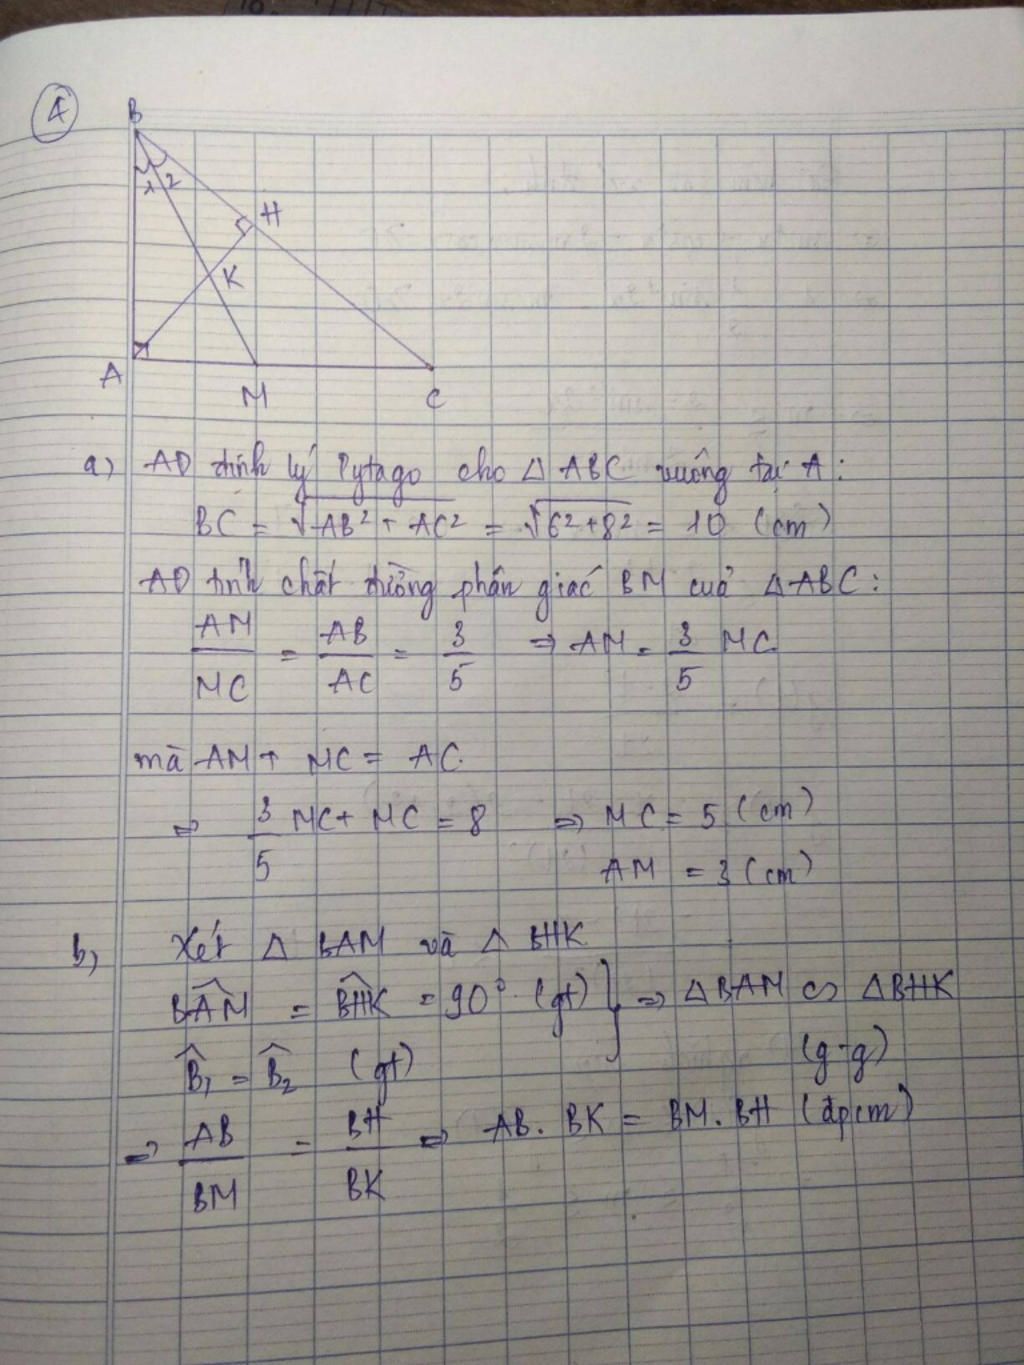 4
B
1 2
H
K
A
M
C
a) AD định lý Pytago cho Δ ABC vuông tại A:
BC = √AB² + AC² = √6²+8² = 10 (cm)
AD tính chất đường phân giác BM của ΔABC:
AM/MC = AB/AC = 3/5 ⇒ AM = 3/5 MC
mà AM + MC = AC.
⇒ 3/5 MC + MC = 8 ⇒ MC = 5 (cm)
AM = 3 (cm)
b) Xét Δ BAM và Δ BHK
BÂM = BĤK = 90° (gt) } ⇒ ΔBAM ∽ ΔBHK
B̂₁ = B̂₂ (gt) (g-g)
⇒ AB/BM = BH/BK ⇒ AB. BK = BM. BH (đpcm)